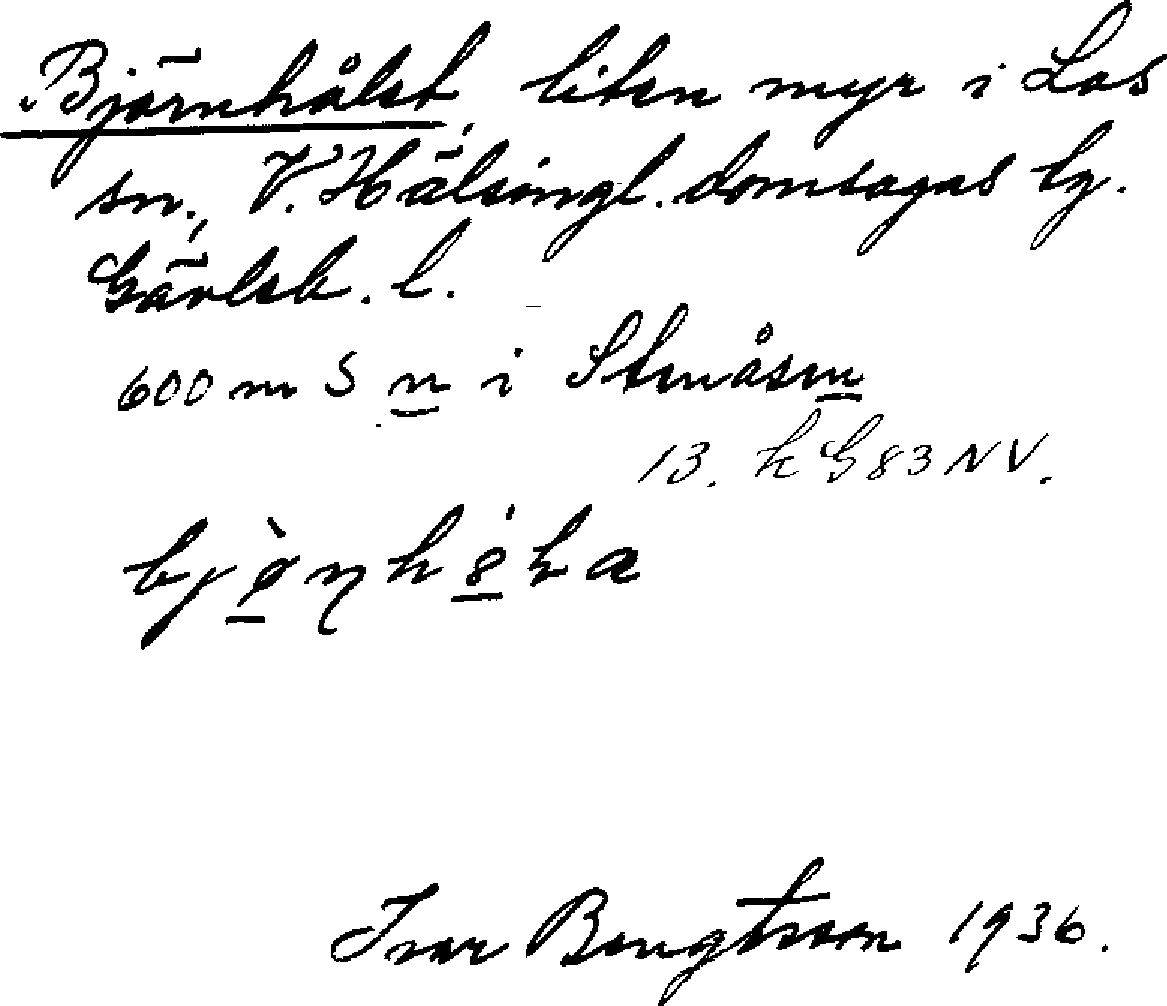 Björnhålet, liten myr i Los
sn., V. Hälsingl. domsagas tg.
Gävleb. l.
600 m S n i Stenåsen
13. k G 83 NV.
Ivar Bengtsson 1936.